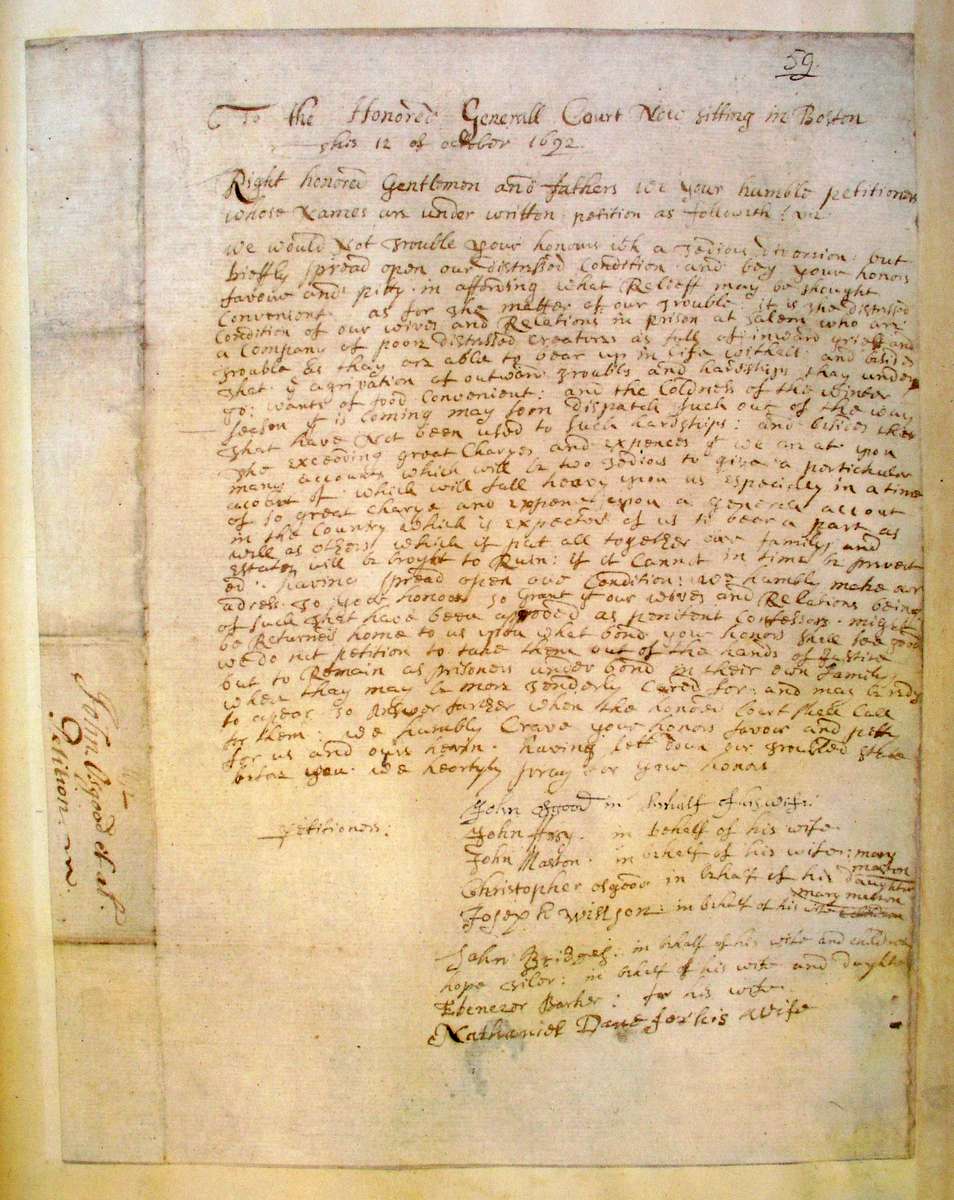 59.
To the Honored Generall Court Now sitting in Boston
this 12 of october 1692
Right honored Gentlemen and fathers we your humble petitioners
whose Names are under written petition as followeth: viz
we would Not trouble your honours wth a tedious diversion: but
briefly spread open our distressed Condition and beg your honors
favour and pitty in affording what Releeff may be thought
Convenient as for the matter of our trouble: it is the distressed
Condition of our wives and Relations in prison at Salem who are
a Company of poor distressed creatures as full of inward grieff and
trouble as thay are able to bear up in life withall and besides
that ye agrivation of outward troubls and hardships thay under
go: wants of food Convenient: and the Coldness of the winter
season yt is coming may soon dispatch such out of the way
that have Not been used to such hardships: and besides this
the exceeding great Charges and expences yt we are at upon
many accounts which will be two tedious to give a pertichular
account of which will fall heavy upon us especially in a time
of so great charge and expence upon a generall account
in the Country which is expected of us to bear a part as
well as others which if put all together our familys and
estates will be broyt to Ruin: if it Cannot in time be prevent
ed. having spread open our Condition: we humbly make our
adress To your honors to Grant yt our wives and Relations being
of such that have been approved as penitent Confessors might
be Returned home to us upon what bond your honors shall see good
we do not petition to take them out of the hands of Justice
but to Remain as prisoners under bond in their own familys
wher thay may be more tenderly Cared for: and may be redy
to apear to Answer farther when the honored Court shall Call
for them: we humbly Crave your honors favour and pitty
for us and ours herein having sett down our troubled state
before you. we heartyly pray for your honors
petitioners:
John Osgood in behalf of his wife:
John fry. in behalf of his wife
John Maston. in behalf of his wife: mary maston
Christopher osgood in behalf of his daughter mary maston
Joseph Willson: in behalf of his wife children
John Bridges: in behalf of his wife and children
hope Tiler: in behalf of his wife and daughter
Ebenezer Barker: for his wife
Nathaniel Dane for his wife
John Osgood et al.
Petition